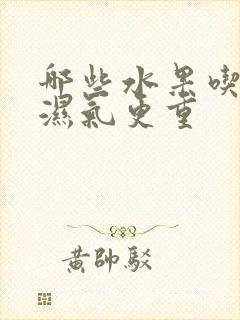 哪些水果喫
濕氣更重
黃帥駁